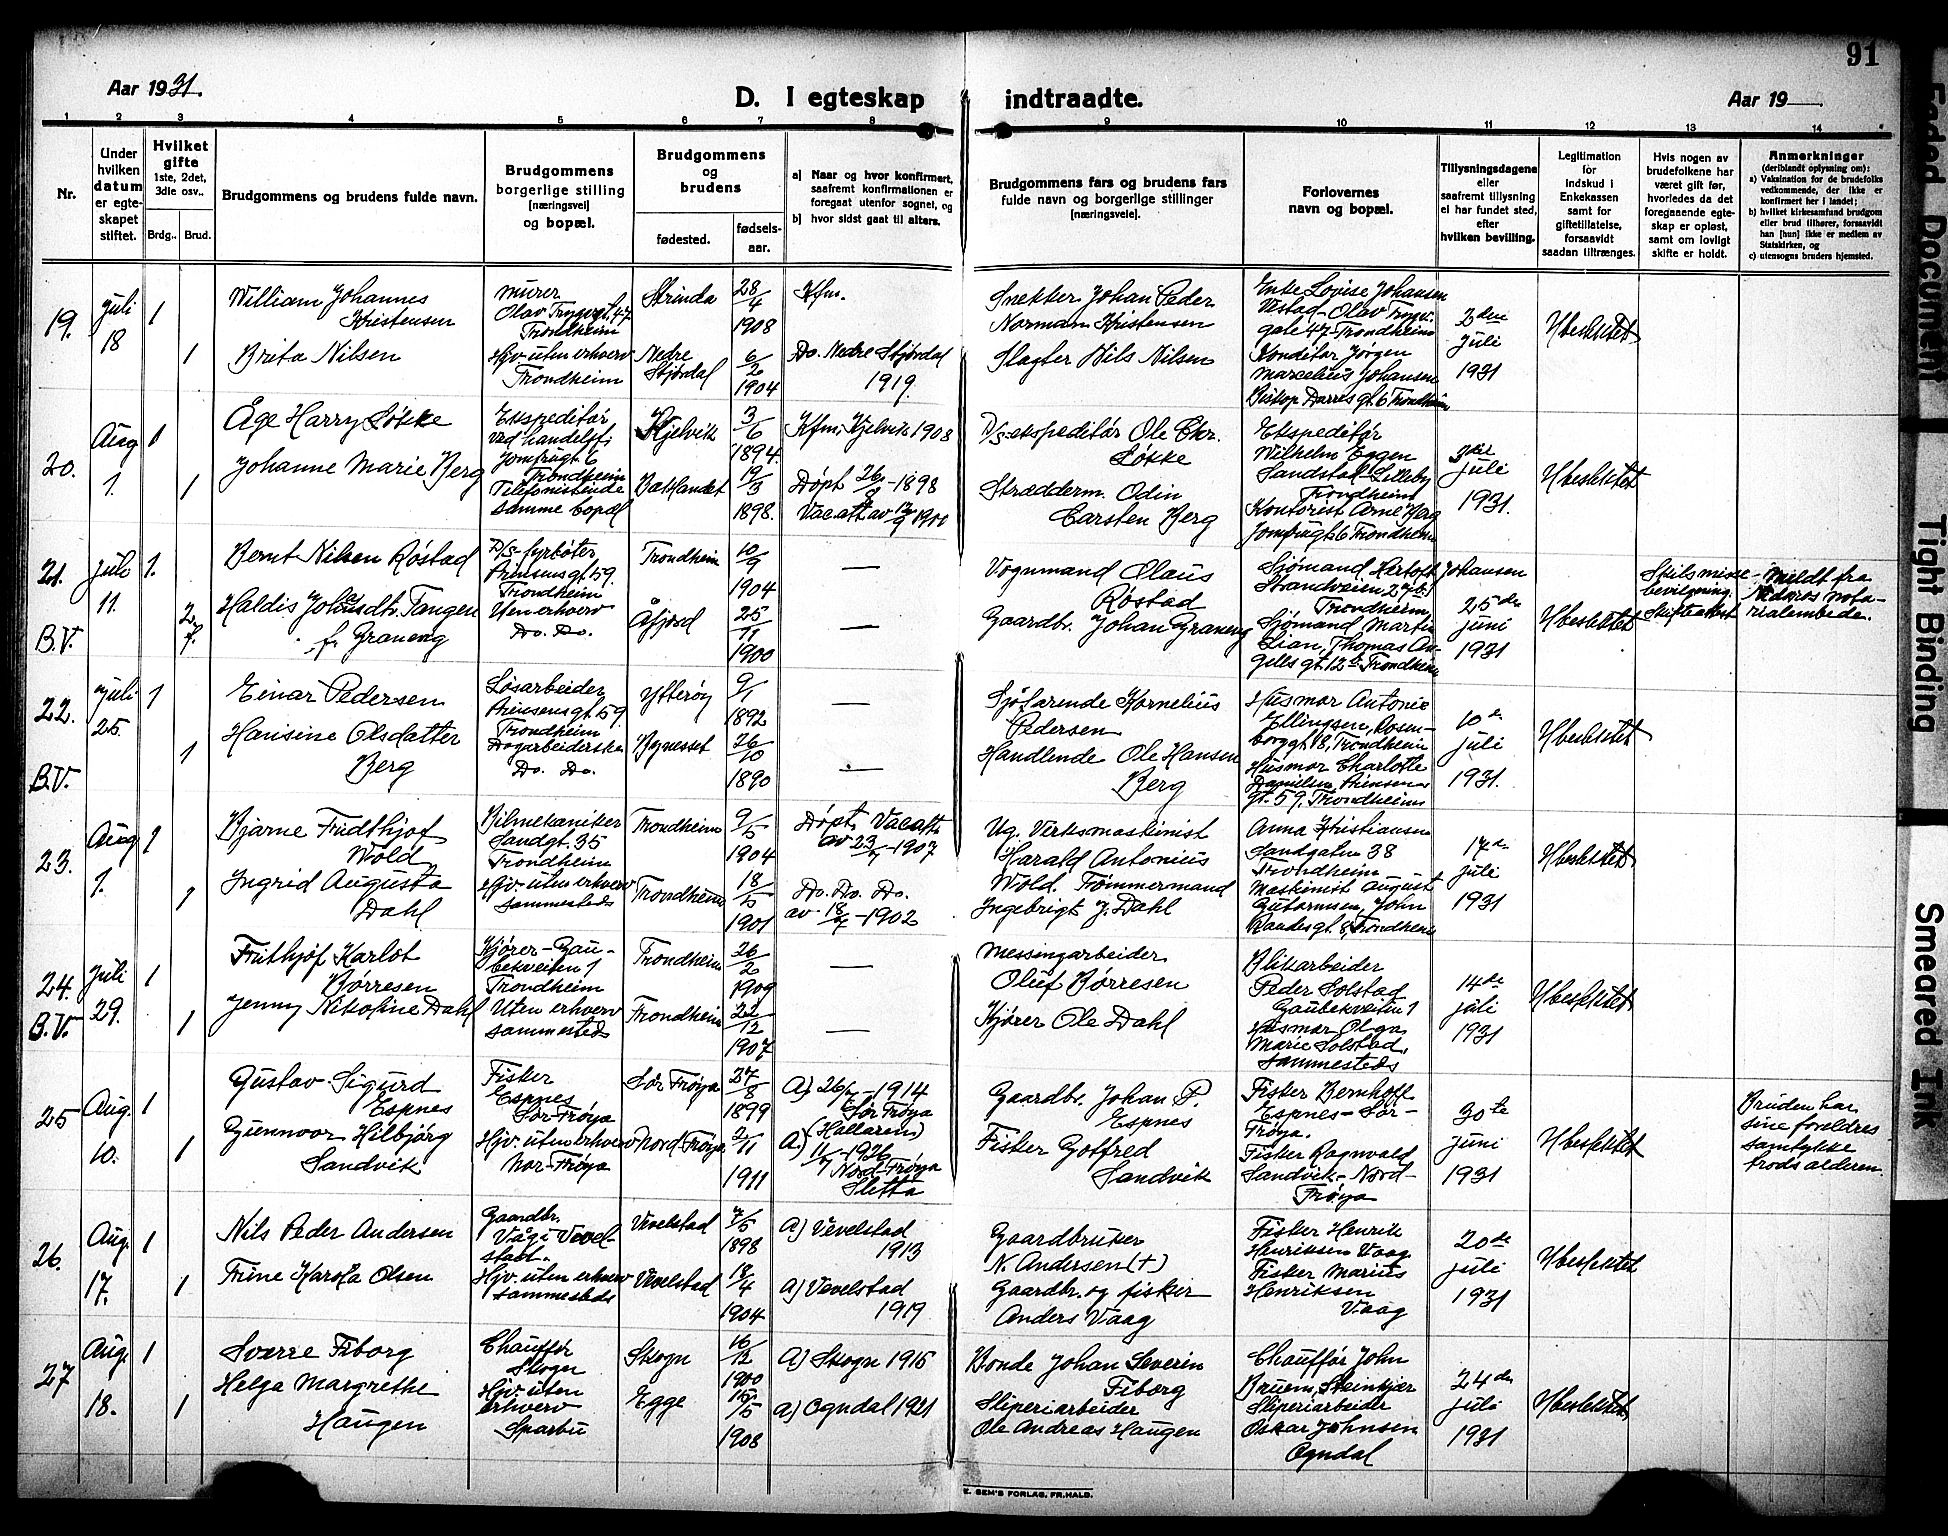 91
Aar 1931.
D. I egteskap indtraadte.
Aar 19
1 2 3 4 5 6 7 8 9 10 11 12 13 14
Nr.
Under hvilken datum er egteskapet stiftet.
Hvilket gifte 1ste, 2det, 3die osv..
Brdg.. Brud.
Brudgommens og brudens fulde navn.
Brudgommens borgerlige stilling [næringsvei] og bopæl.
Brudgommens og brudens
fødested. fødselsaar.
a) Naar og hvor konfirmert, saafremt konfirmationen er foregaat utenfor sognet, og
b) hvor sidst gaat til alters.
Brudgommens fars og brudens fars fulde navn og borgerlige stillinger [næringsveie].
Forlovernes navn og bopæl.
Tillysningsdagene eller saafremt tillysning ei har fundet sted, efter hvilken bevilling.
Legitimation for Indskud i Enkekassen samt for giftetillatelse, forsaavidt saadan tiltrænges.
Hvis nogen av brudefolkene har været gift før, hvorledes da det foregaaende egteskap er opløst, samt om lovligt skifte er holdt.
Anmerkninger (deriblandt oplysning om):
a) Vaksination for de brudefolks vedkommende, der ikke er konfirmert her i landet;
b) hvilket kirkesamfund brudgom eller brud tilhører, forsaavidt han [hun] ikke er medlem av Statskirken, og
c) utensogns bruders hjemsted.
19. Juli 18 1
William Johannes Kristensen
Murer Olav Trygvgt. 47 Trondheim
Strinda 28/4 1908
Kfm.
Snekker Johan Peder Norman Kristensen
Enke Lovise Johansen Vestad - Olav Trygv. gate 47 - Trondheim
2den Juli 1931
Ubeslektet
1 Brita Nilsen
Hjv. uten erhverv Trondheim
Nedre Stjørdal 6/2 1904
Do. Nedre Stjørdal 1919.
Slagter Nils Nilsen
Konditor Jørgen Marcelius Johansen Biskop Darres gt. 6 Trondheim
20. Aug 1. 1
Åge Harry Løkke
Ekspeditør ved handelsf. Jomfrugt. 6 Trondheim
Hjelvik 3/6 1894.
Kfm. Hjelvik 1908
D/s-ekspeditør Ole Chr. Løkke
Ekspeditør Wilhelm Eggen Sandstad Lilleby Trondheim
3die Juli 1931.
Ubeslektet
1 Johanne Marie Berg
Telefonistinde samme bopæl
Baklandet 19/3 1898.
Døpt 26/ - 1898 Vacatt. av 12/9 1900
Strædderm. Odin Carsten Berg
Kontorist Arne Berg Jomfrugt. 6 Trondheim
21. Juli 11. B.V. 1.
Bernt Nilsen Røstad
D/s-fyrbøter Prinsensgt. 59. Trondheim
Trondheim 10/9 1904
—
Vognmand Olaus Røstad
Sjømand Hartoft Johansen Strandveien 27 Trondheim
25de Juni 1931
Ubeslektet
Skilsmissebevilgning. Skifteattest
Meldt fra Nidaros notarialembede.
2 f. Haldis Johansdtr. Tangen f. Graneng
Uten erhverv Do. Do.
Åfjord 25/11 1900
—
Gaardbr. Johan Graneng
Sjømand Martin Lian, Thomas Angells gt. 12b Trondheim
22. Juli 25. B.V. 1
Einar Pedersen
Løsarbeider Prinsensgt. 59. Trondheim
Ytterøy 9/1 1892
—
Sjøfarende Kornelius Pedersen
Husmor Antonie Ellingsen, Rosenborggt. 18, Trondheim
10de Juli 1931.
Ubeslektet
1 Hansine Olsdatter Berg
Dagarbeiderske Do. Do.
Bynesset 26/10 1890
—
Handlende Ole Hansen Berg
Husmor Charlotte Danielsen Prinsens gt. 59, Trondheim
23. Aug 1. 1
Bjarne Fridthjof Wold
Bilmekaniker Sandgt. 35 Trondheim
Trondheim 9/5 1904
Døpt. Vacatt. av 23/ - 1907
Ug. Verksmaskinist Harald Antonius Wold.
Anna Kristiansen Sandgaten 38 Trondheim
17de Juli 1931
Ubeslektet
1 Ingrid Augusta Dahl
Hjv. uten erhverv sammesteds
Trondheim 18/5 1901
Do. Do. Do. av 18/ - 1902
Tømmermand Ingebrigt J. Dahl
Maskinist August Gutormsen, John Randesgt. 8, Trondheim
24. Juli 29. B.V. 1
Frithjof Karlot Børresen
Kjører - Gaubekveiten 1 Trondheim
Trondheim 26/2 1909
—
Messingarbeider Oluf Børresen
Blikarbeider Peder Solstad Gaubekveiten 1
14de Juli 1931
Ubeslektet
1 Jenny Nikoline Dahl
Uten erhverv sammesteds
Trondheim 22/12 1907
—
Kjører Ole Dahl
Husmor Olga Marie Solstad, sammesteds
25 Aug. 10. 1
Gustav Sigurd Espnes
Fisker Espnes Sør-Frøya
Sør Frøya 27/8 1899
A) 26/7 - 1914 Sør Frøya (Hallaren)
Gaardbr. Johan P. Espnes
Fisker Bernhoff Espnes - Sør-Frøya.
30te Juni 1931
Ubeslektet
Bruden har sine foreldres samtykke trods alderen.
1 Gunnvor Hilbjørg Sandvik
Hjv. uten erhverv Nor-Frøya
Nord Frøya 2/11 1911
A) 11/7 - 1926 Nord-Frøya Sletta
Fisker Gotfred Sandvik
Fisker Ragnvald Sandvik - Nord-Frøya
26. Aug. 17. 1
Nils Peder Andersen
Gaardbr. Våg i Vevelstad.
Vevelstad 7/5 1898
A) Vevelstad 1913
Gaardbruker N. Andersen (+)
Fisker Henrik Henriksen Vaag
20de Juli 1931
Ubeslektet
1 Trine Karola Olsen
Hjv. uten erhverv sammesteds
Vevelstad 18/4 1904
A) Vevelstad 1919
Gaardbr. og fisker Anders Vaag
Fisker Marius Henriksen Vaag
27 Aug. 18. 1
Sverre Fiborg
Chauffør Skogn
Skogn 16/12 1900
A) Skogn 1915
Bonde Johan Severin Fiborg
Chauffør John Bruem, Steinkjær
24de Juli 1931
Ubeslektet
1 Helga Margrethe Haugen
Hjv. uten erhverv Sparbu
Egge 15/5 1908
a) Ogndal 1921
Sliperiarbeider Ole Andreas Haugen
Sliperiarbeider Oskar Johnsen Ogndal
E. SEM'S FORLAG, FR.HALD.
Faded Document
Tight Binding
Smeared Ink